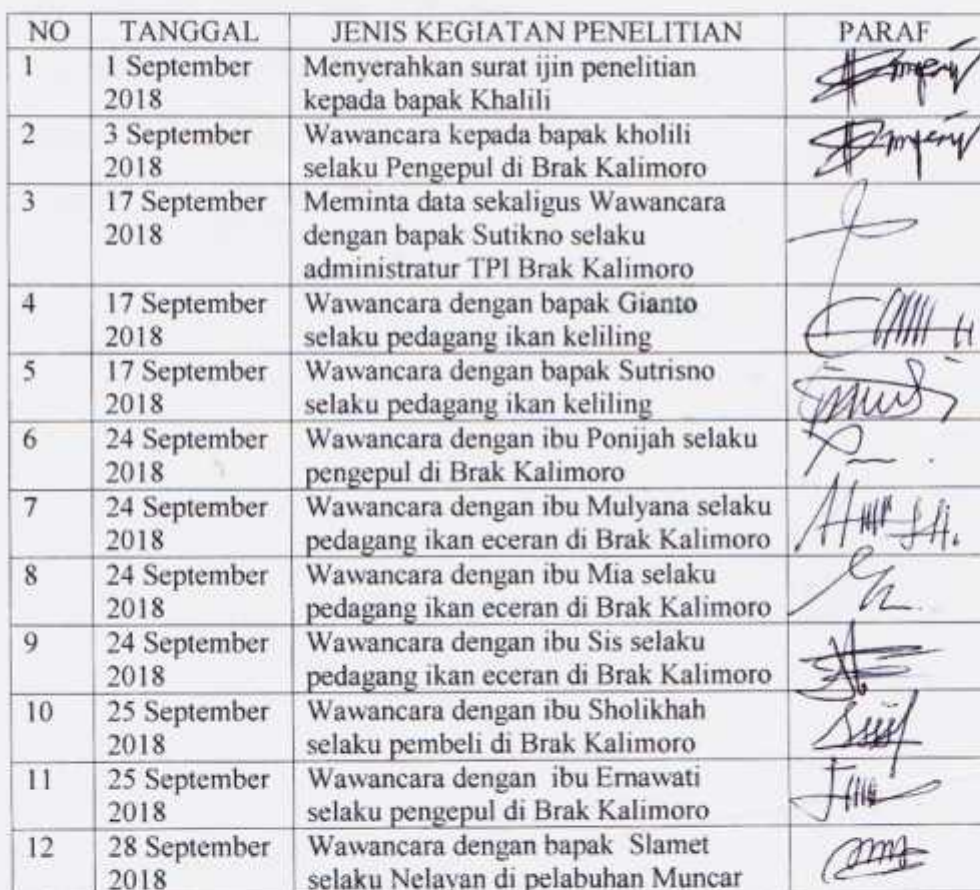 NO TANGGAL JENIS KEGIATAN PENELITIAN PARAF
1 1 September Menyerahkan surat ijin penelitian
2018 kepada bapak Khalili
2 3 September Wawancara kepada bapak kholili
2018 selaku Pengepul di Brak Kalimoro
3 17 September Meminta data sekaligus Wawancara
2018 dengan bapak Sutikno selaku
administratur TPI Brak Kalimoro
4 17 September Wawancara dengan bapak Gianto
2018 selaku pedagang ikan keliling
5 17 September Wawancara dengan bapak Sutrisno
2018 selaku pedagang ikan keliling
6 24 September Wawancara dengan ibu Ponijah selaku
2018 pengepul di Brak Kalimoro
7 24 September Wawancara dengan ibu Mulyana selaku
2018 pedagang ikan eceran di Brak Kalimoro
8 24 September Wawancara dengan ibu Mia selaku
2018 pedagang ikan eceran di Brak Kalimoro
9 24 September Wawancara dengan ibu Sis selaku
2018 pedagang ikan eceran di Brak Kalimoro
10 25 September Wawancara dengan ibu Sholikhah
2018 selaku pembeli di Brak Kalimoro
11 25 September Wawancara dengan ibu Ernawati
2018 selaku pengepul di Brak Kalimoro
12 28 September Wawancara dengan bapak Slamet
2018 selaku Nelayan di pelabuhan Muncar